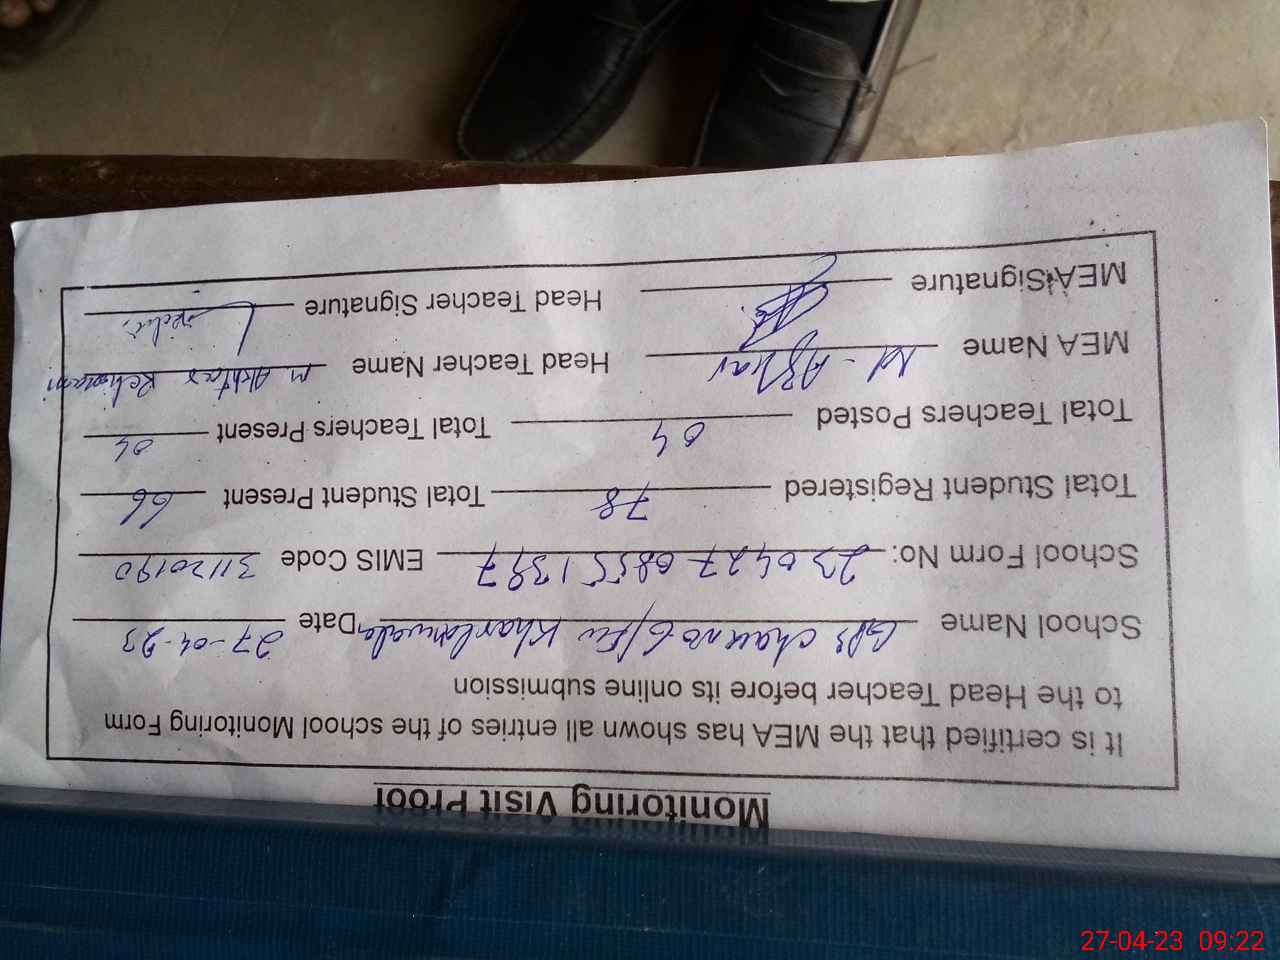 Monitoring Visit Proof
It is certified that the MEA has shown all entries of the school Monitoring Form
to the Head Teacher before its online submission
School Name GPS chak no 6/Fw Date 27-04-23
School Form No: 230427 0855 1397 EMIS Code 31120190
Total Student Registered 78 Total Student Present 66
Total Teachers Posted 04 Total Teachers Present 04
MEA Name Head Teacher Name M Akhtar
MEA Signature Head Teacher Signature
27-04-23 09:22